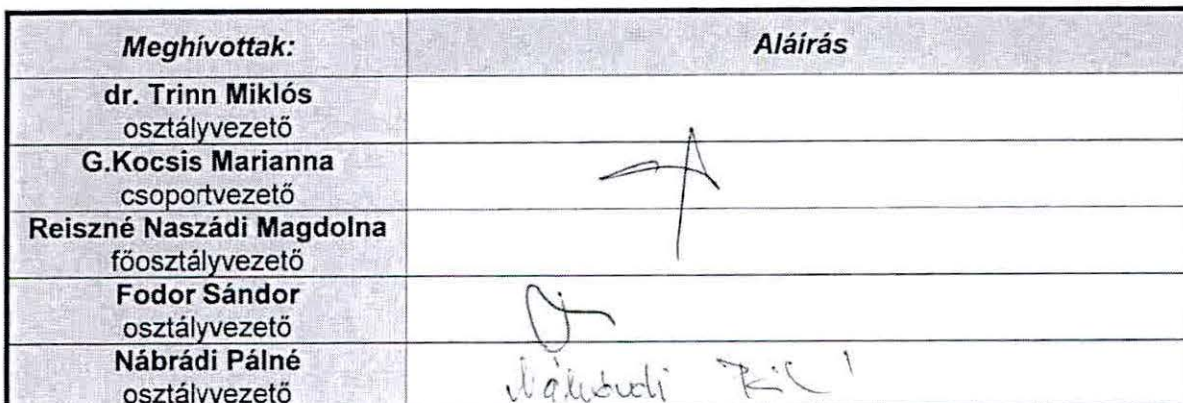 Meghívottak: Aláírás
dr. Trinn Miklós
osztályvezető
G.Kocsis Marianna
csoportvezető
Reiszné Naszádi Magdolna
főosztályvezető
Fodor Sándor
osztályvezető
Nábrádi Pálné
osztályvezető